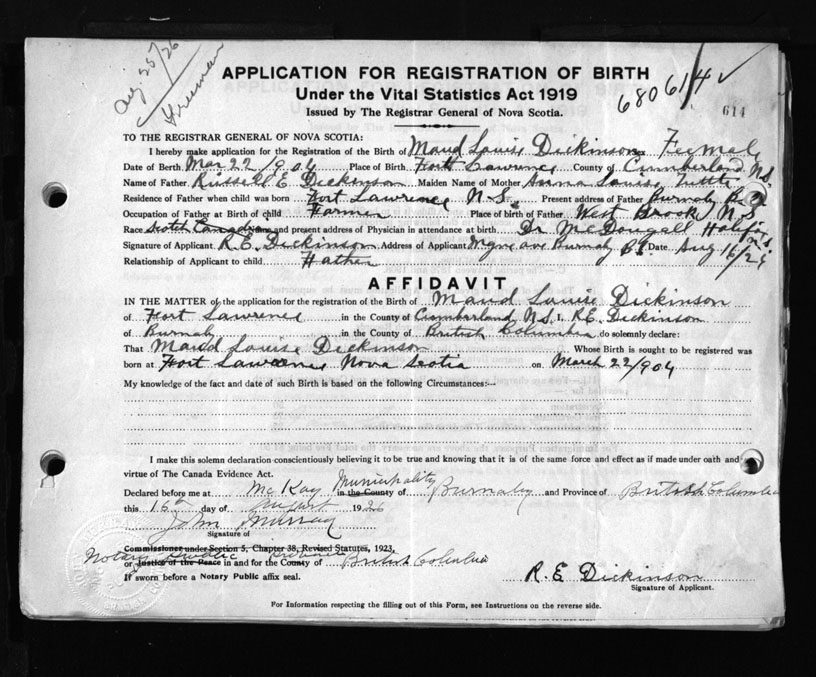 Aug 25/26
Freeman
APPLICATION FOR REGISTRATION OF BIRTH
Under the Vital Statistics Act 1919
Issued by The Registrar General of Nova Scotia.
680614
614
TO THE REGISTRAR GENERAL OF NOVA SCOTIA:
I hereby make application for the Registration of the Birth of Maud Louise Dickinson Female
Date of Birth Mar 22/904 Place of Birth Fort Lawrence County of Cumberland N.S.
Name of Father Russell E Dickenson Maiden Name of Mother Anna Louise
Residence of Father when child was born Fort Lawrence N.S. Present address of Father Burnaby B.C.
Occupation of Father at Birth of child Farmer Place of birth of Father West Brook N.S
Race Scotch Canadian and present address of Physician in attendance at birth Dr McDougall Halifax N.S.
Signature of Applicant R.E. Dickinson Address of Applicant ave Burnaby BC. Date Aug 16/26
Relationship of Applicant to child Father
AFFIDAVIT
IN THE MATTER of the application for the registration of the Birth of Maud Louise Dickinson
of Fort Lawrence in the County of Cumberland N.S. I R.E. Dickinson
of Burnaby in the County of British Columbia do solemnly declare:
That Maud Louise Dickinson Whose Birth is sought to be registered was
born at Fort Lawrence Nova Scotia on March 22/904
My knowledge of the fact and date of such Birth is based on the following Circumstances:—
I make this solemn declaration conscientiously believing it to be true and knowing that it is of the same force and effect as if made under oath and
virtue of The Canada Evidence Act.
Declared before me at McKay in the County Municipality of Burnaby and Province of British Columbia
this 16th day of August 1926
John Murray
Signature of
Commissioner under Section 5, Chapter 38, Revised Statutes, 1923,
Notary Public Province
or Justice of the Peace in and for the County of British Columbia
If sworn before a Notary Public affix seal.
R.E Dickinson
Signature of Applicant.
For Information respecting the filling out of this Form, see Instructions on the reverse side.